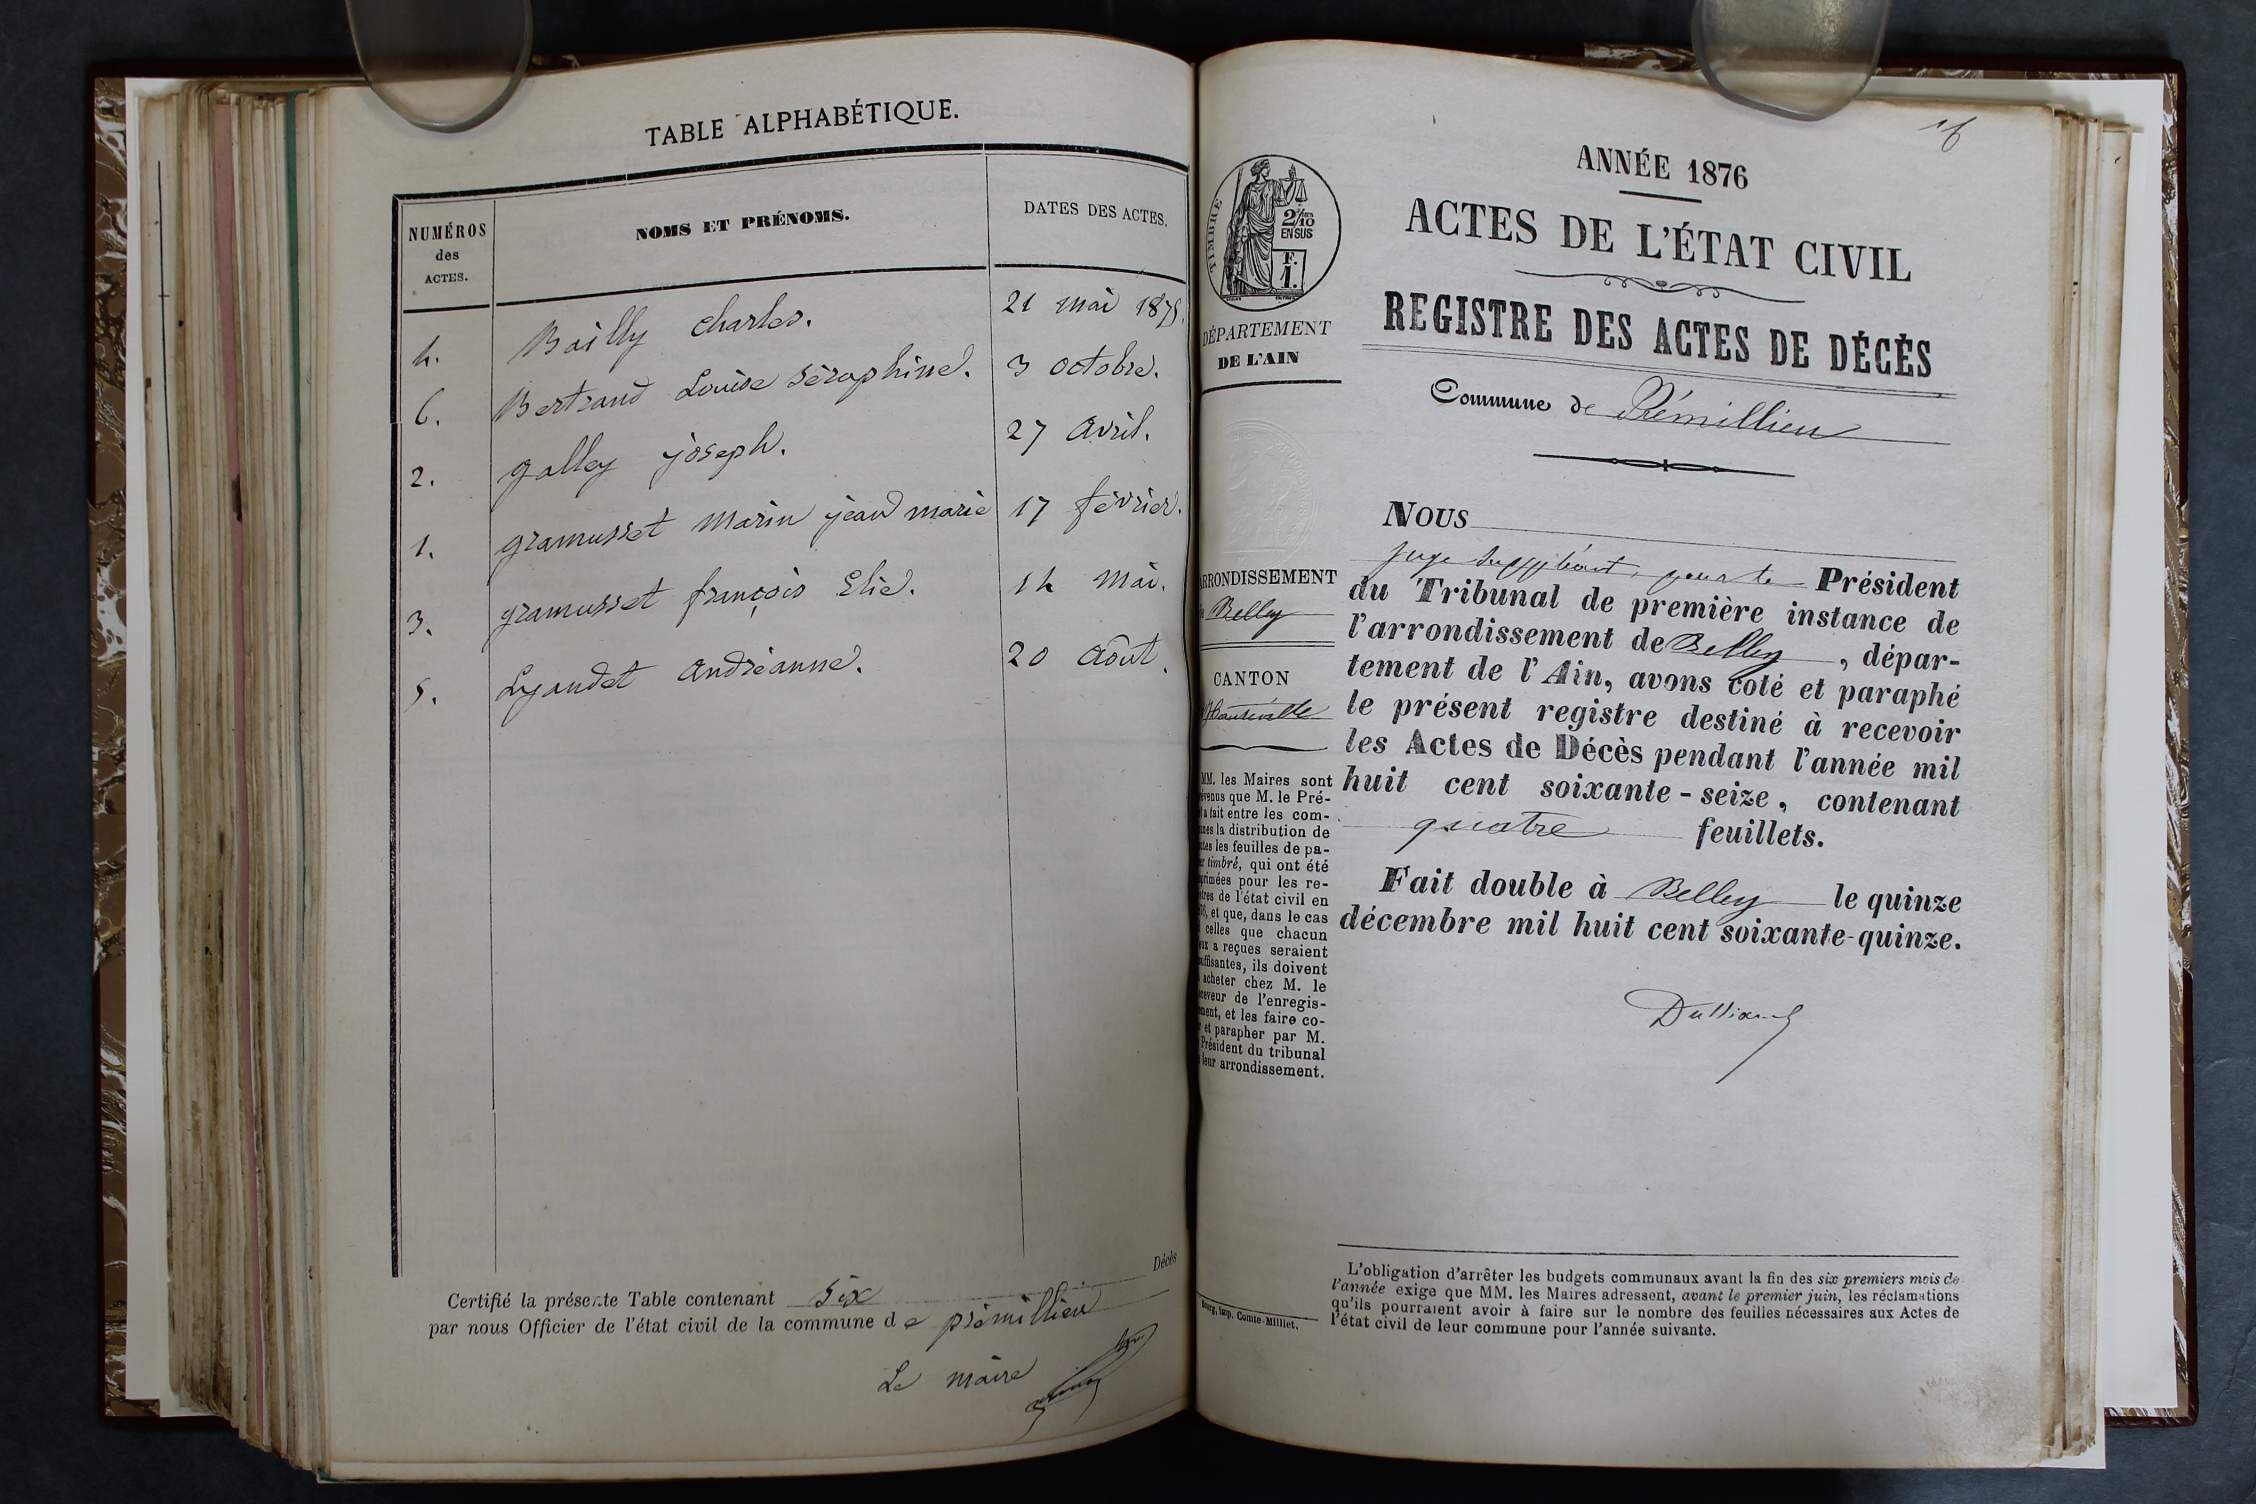 TABLE ALPHABÉTIQUE.
NUMÉROS
des
ACTES.
NOMS ET PRÉNOMS.
DATES DES ACTES.
4. Bailly Charles. 21 mai 1875.
6. Bertrand Louise Séraphine. 3 octobre.
2. galley joseph. 27 avril.
1. gramusset Marin jean marie 17 février.
3. gramusset françois Elie. 14 Mai.
5. Lyaudet Andréanne. 20 Août.
Décès
Certifié la présente Table contenant six
par nous Officier de l'état civil de la commune de prémillieu
Le maire
16
ANNÉE 1876
ACTES DE L'ÉTAT CIVIL
REGISTRE DES ACTES DE DÉCÈS
Commune de Prémillieu
TIMBRE
2/10
EN SUS
F.
1.
DÉPARTEMENT
DE L'AIN
ARRONDISSEMENT
Belley
CANTON
d'Hauteville
MM. les Maires sont
prévenus que M. le Pré-
fet a fait entre les com-
munes la distribution de
toutes les feuilles de pa-
pier timbré, qui ont été
imprimées pour les re-
gistres de l'état civil en
1876, et que, dans le cas
où celles que chacun
d'eux a reçues seraient
insuffisantes, ils doivent
en acheter chez M. le
Receveur de l'enregis-
trement, et les faire co-
ter et parapher par M.
le Président du tribunal
de leur arrondissement.
NOUS
juge suppléant, pour le Président
du Tribunal de première instance de
l'arrondissement de Belley, dépar-
tement de l'Ain, avons coté et paraphé
le présent registre destiné à recevoir
les Actes de Décès pendant l'année mil
huit cent soixante-seize, contenant
quatre feuillets.
Fait double à Belley le quinze
décembre mil huit cent soixante-quinze.
Dulliand
L'obligation d'arrêter les budgets communaux avant la fin des six premiers mois de
l'année exige que MM. les Maires adressent, avant le premier juin, les réclamations
qu'ils pourraient avoir à faire sur le nombre des feuilles nécessaires aux Actes de
l'état civil de leur commune pour l'année suivante.
Bourg, imp. Comte-Milliet.